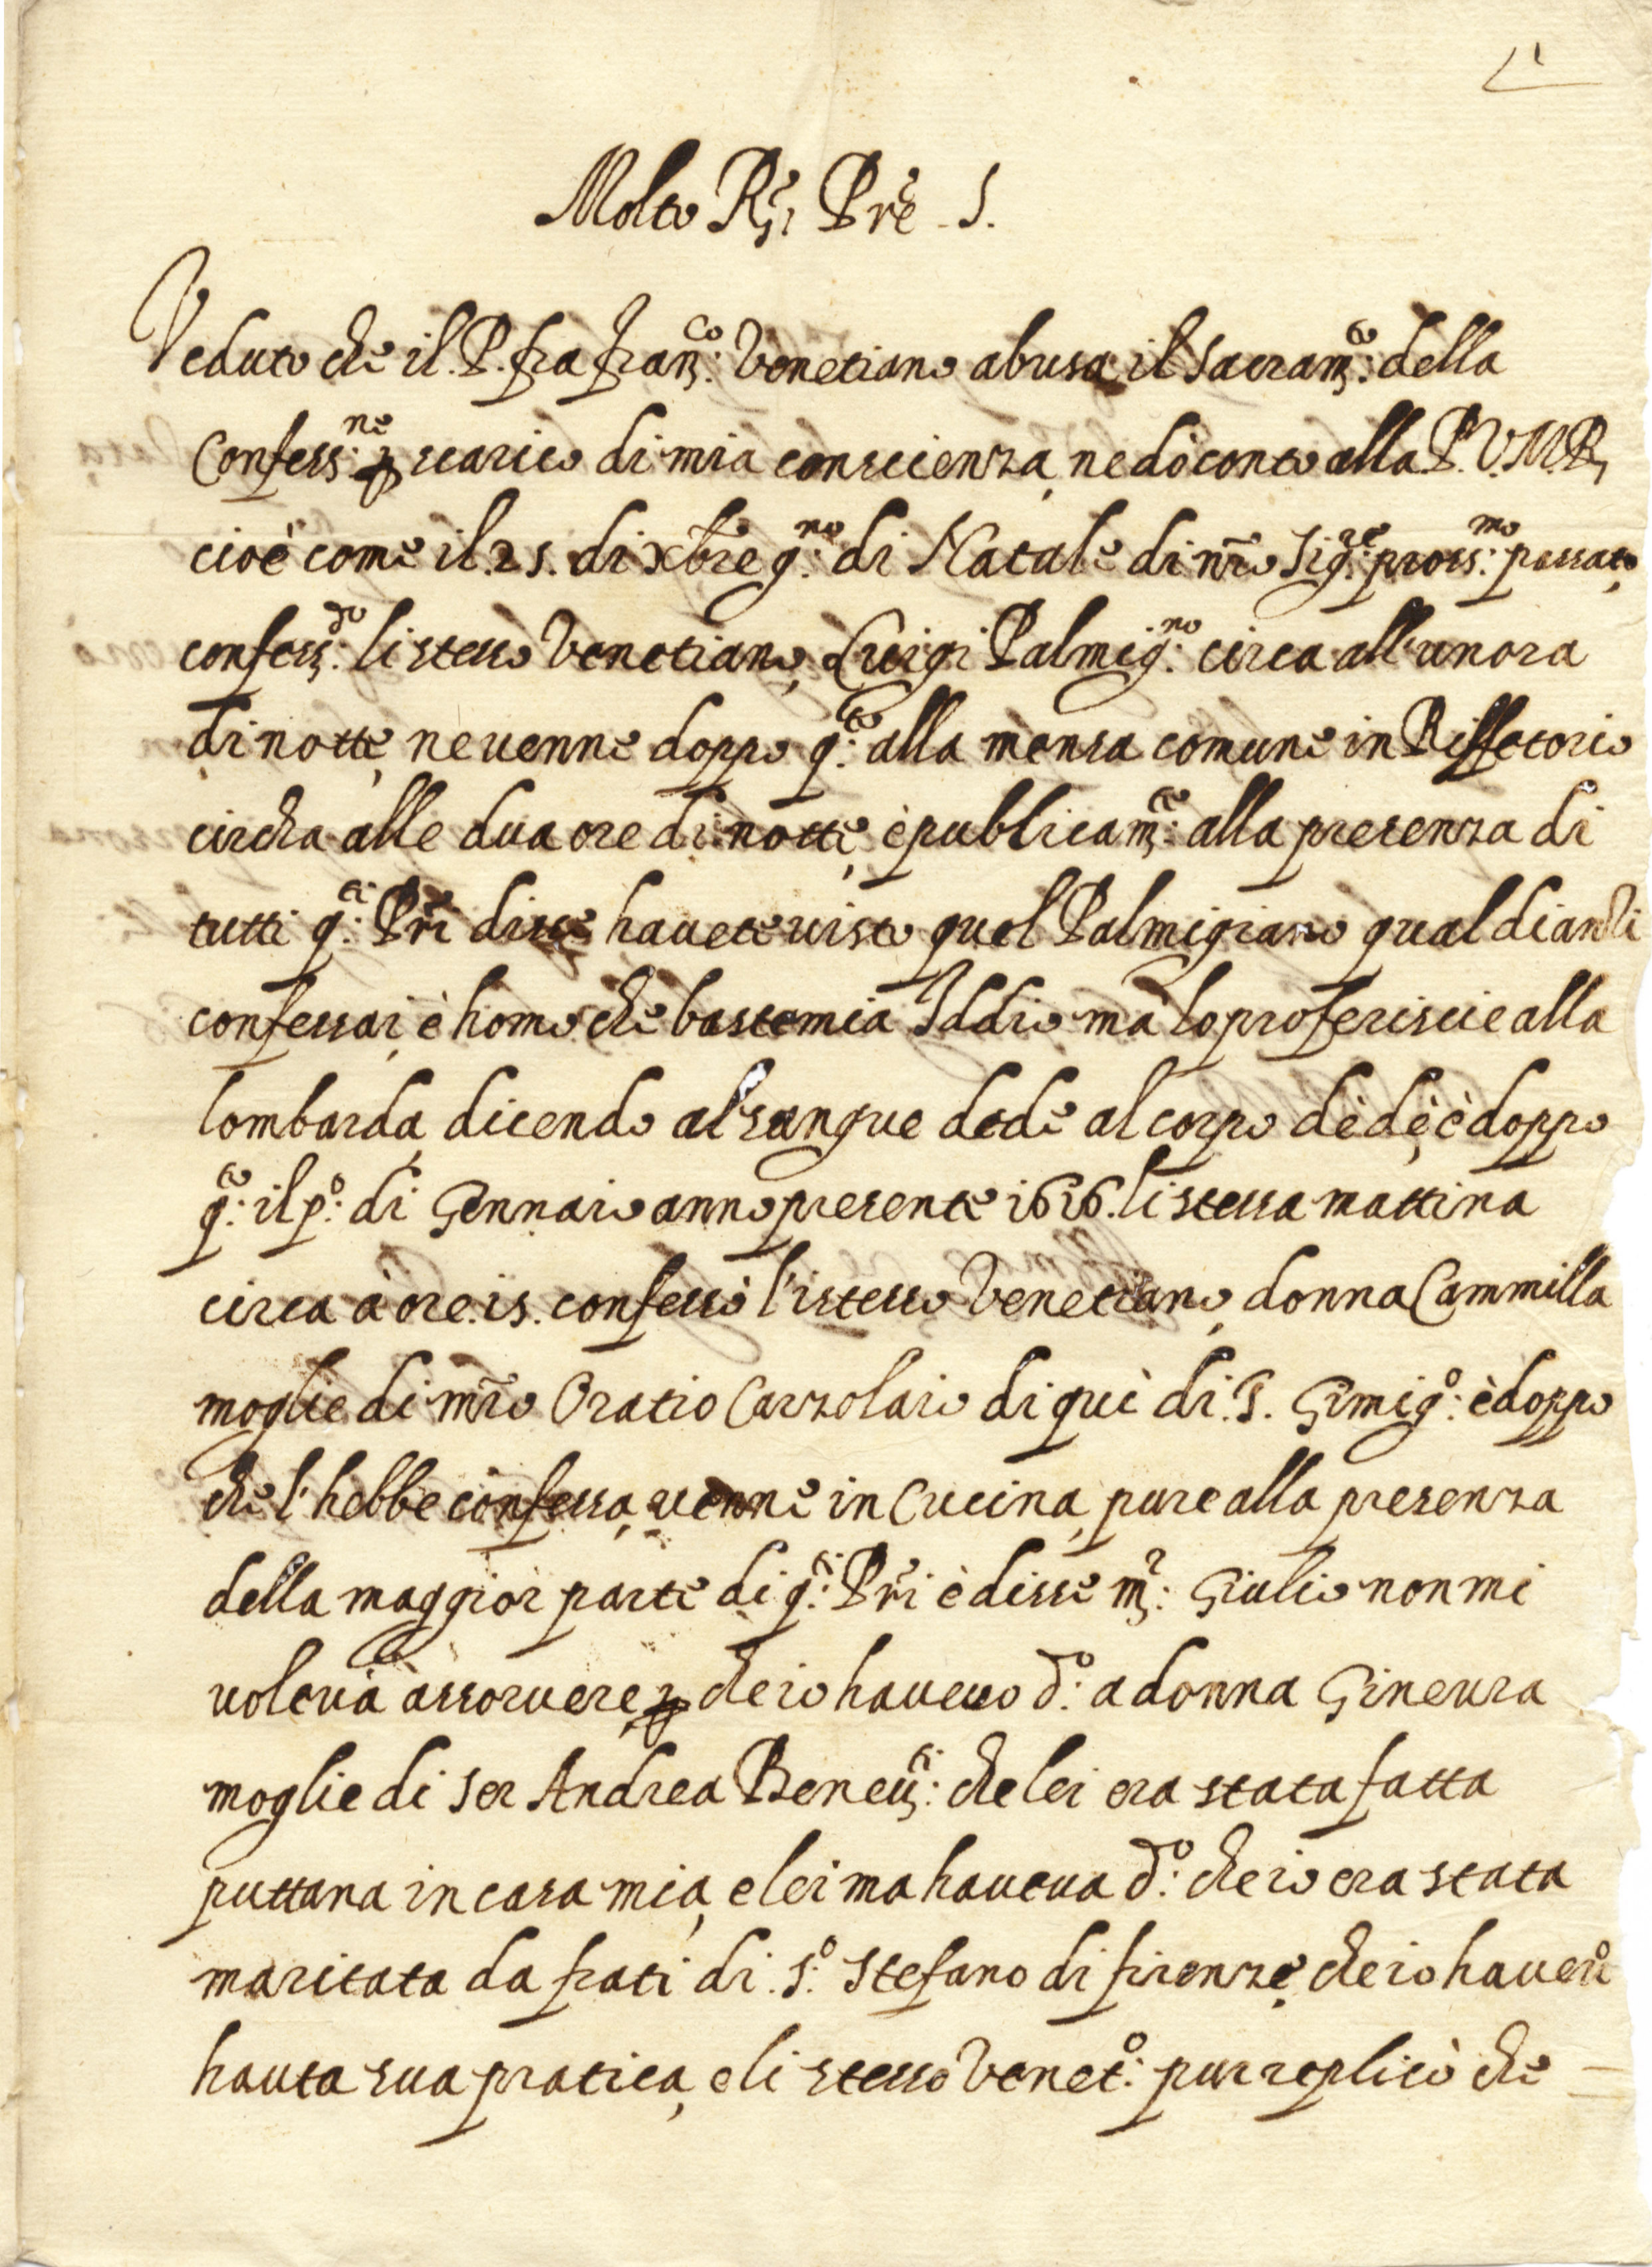 Molto R.ᵈᵒ Prē S.
Veduto che il P. fra fran.ᶜᵒ Venetiano abusa il sacram.ᵗᵒ della
Confess.ⁿᵉ ꝑ scarico di mia conscienza, ne dò conto alla P.V.M.R,
cioè come il 25. di xbre g.ⁿᵒ di Natale di nr̄o Sig.ʳᵉ pross.ᵐᵒ passato,
confess.ᵈᵒ listesso Venetiano, Luigi Palmig.ⁿᵒ circa all'unora
di notte, ne venne doppo q.ᵗᵒ alla mensa comune in Riffetorio
circha alle dua ore di notte, è publicam.ᵗᵉ alla presenza di
tutti q.ᵗⁱ Pr̄i disse havete visto quel Palmigiano qual dianzi
confessai, è homo che bastemia Iddio mà lo proferiscie alla
lombarda, dicendo al sangue dedè al corpo dè dè, è doppo
q.ᵗᵒ il p.ᵒ di Gennaio anno presente 1616. listessa mattina
circa à ore .15. confessò l'istesso Venetiano, donna Cammilla
moglie di mr̄o Oratio Carzolaio di quì di S. Gimig.ᵒ è doppo
che l'hebbe confessa, venne in Cucina, pure alla presenza
della maggior parte di q.ᵗⁱ Pr̄i è disse m.ʳ Giulio non mi
voleva assorvere, ꝑ che io havevo d.ᵒ a donna Ginevra
moglie di ser Andrea Benev.ᵗⁱ che lei era stata fatta
puttana in casa mia, e lei ma haveva d.ᵒ che io era stata
maritata da frati di S.ᵒ Stefano di firenze, che io havevo
hauta sua pratica, e li stesso Venet.ᵒ pur replicò che